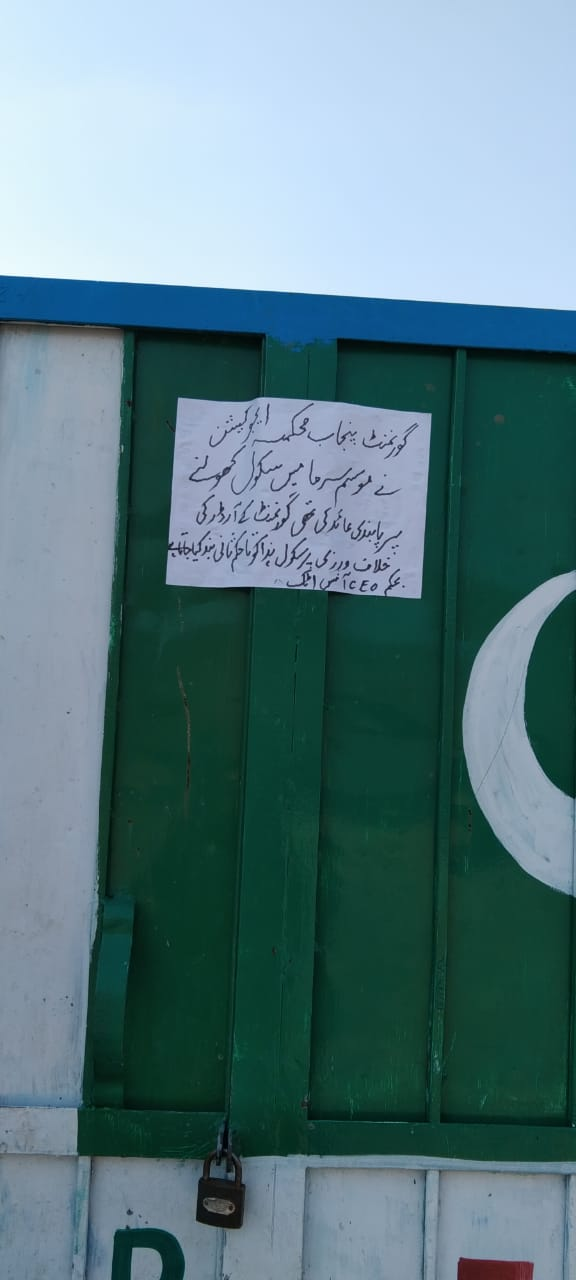 گورنمنٹ پنجاب محکمہ ایجوکیشن
نے موسم سرما میں سکول کھولنے
پر پابندی عائد کی تھی گورنمنٹ کے آرڈر کی
خلاف ورزی پر سکول ہذا کو تا حکم ثانی بند کیا جاتا ہے
بحکم CEO آفس اٹک
P